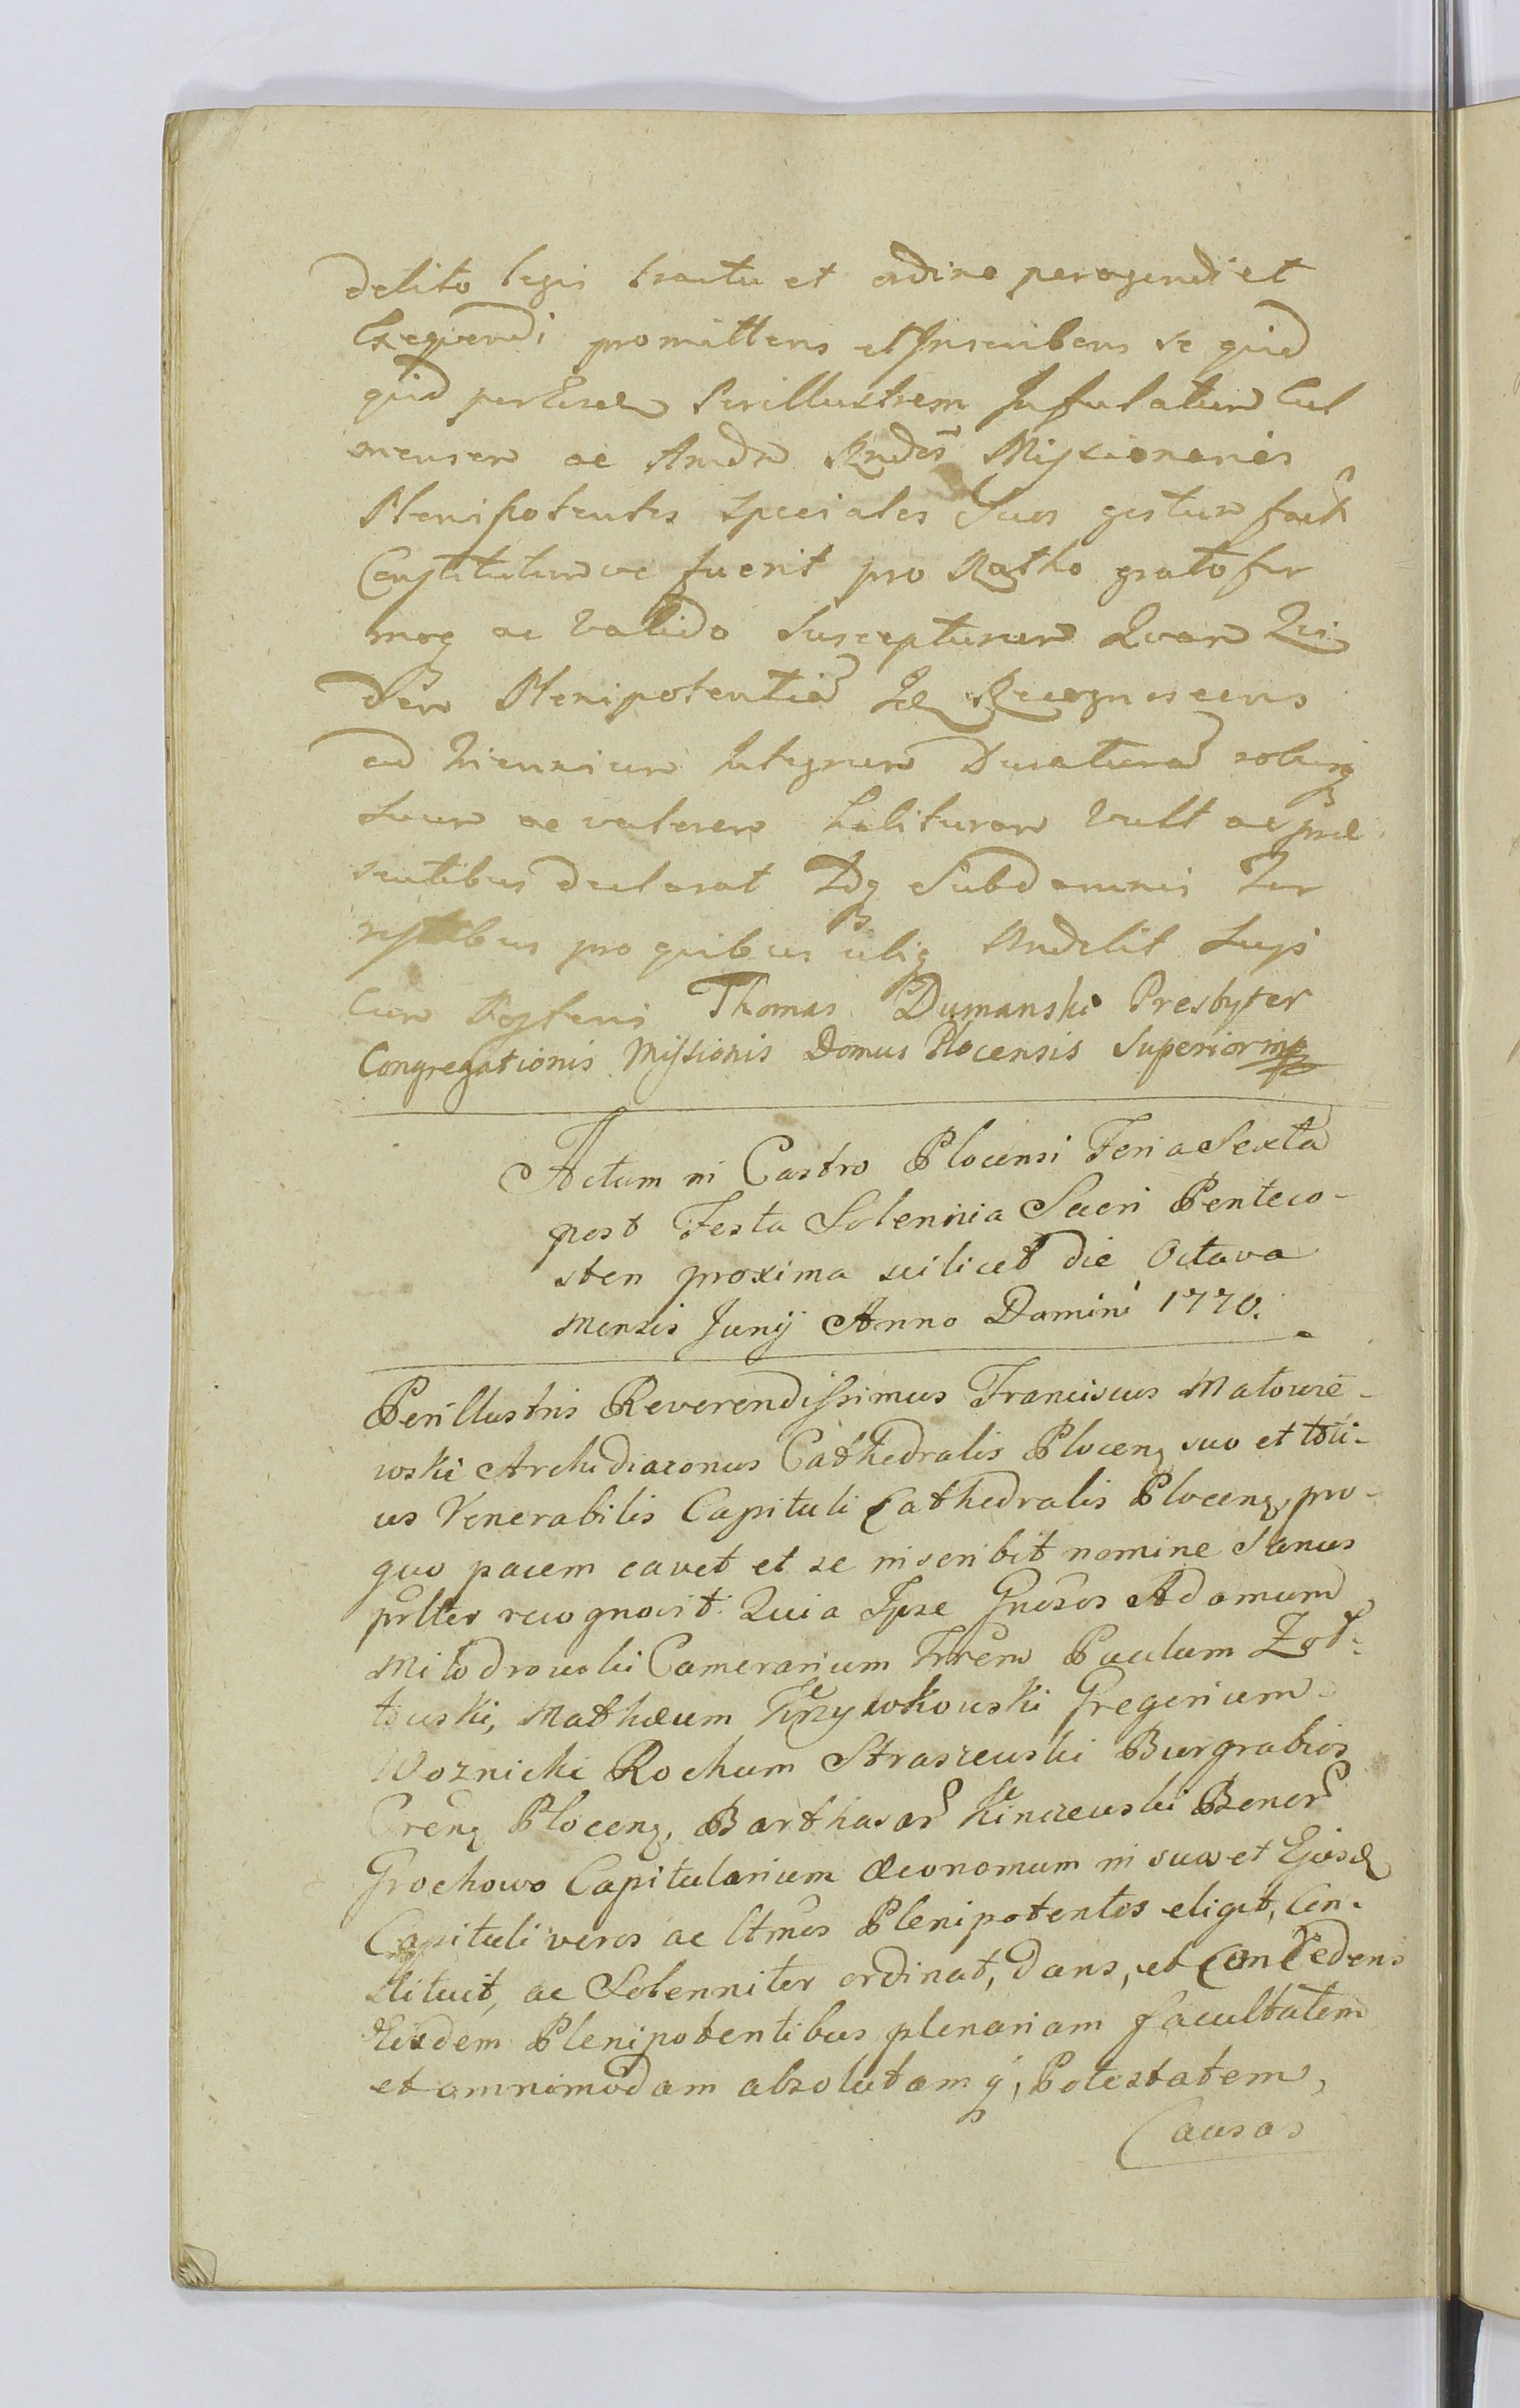 debito legis tractu et ordine peragendi et
Exequendi promittens et Inscribens se quid
quid per Eosd Perillustrem Infulatum Cul
mensem ac Andm Rndos Missionarios
Plenipotentes speciales Suos gestum fact
Constitutumve fuerit pro Ratho grato fir
moq ac Valido Suscepturum Quam Qui
dem Plenipotentia Id Recognoscens
ad Triennium Integrum Duraturã roburq
Suum ac valorem habituram Vult ac præ
sentibus declarat Idq Sub damnis Ter
restribus pro quibus
cum Thomas Dumanski Presbyter
Congregationis Missionis Domus Plocensis Superior mp
Actum in Castro Plocensi Feria Sexta
post Festa Solennia Sacri Penteco-
sten proxima scilicet die Octava
Mensis Junij Anno Domini 1770.
Perillustris Reverendissimus Franciscus Matowie-
wski Archidiaconus Cathedralis Plocenq suo et toti-
us Venerabilis Capituli Cathedralis Plocenq, pro-
quo pacem cavet et se inscribit nomine Sanus
prlter recognovit. Quia Ipse Gnosos Adamum
Milodrowski Camerarium Trrem Paulum Zół-
towski, Mathæum Krzywkowski Gregorium
Woznicki Rochum Straszewski Burgrabios
Crenq Plocenq, Barthasar Kinicewski Bonor
Grochowo Capitularium Œconomum in suos et Ejusd
Capituli veros ac ltmos Plenipotentes eligit, Con-
stituit, ac Solenniter ordinat, dans, et Concedens
Eisdem Plenipotentibus plenariam facultatem
et omnimodam absolutamq, Potestatem,
Causas